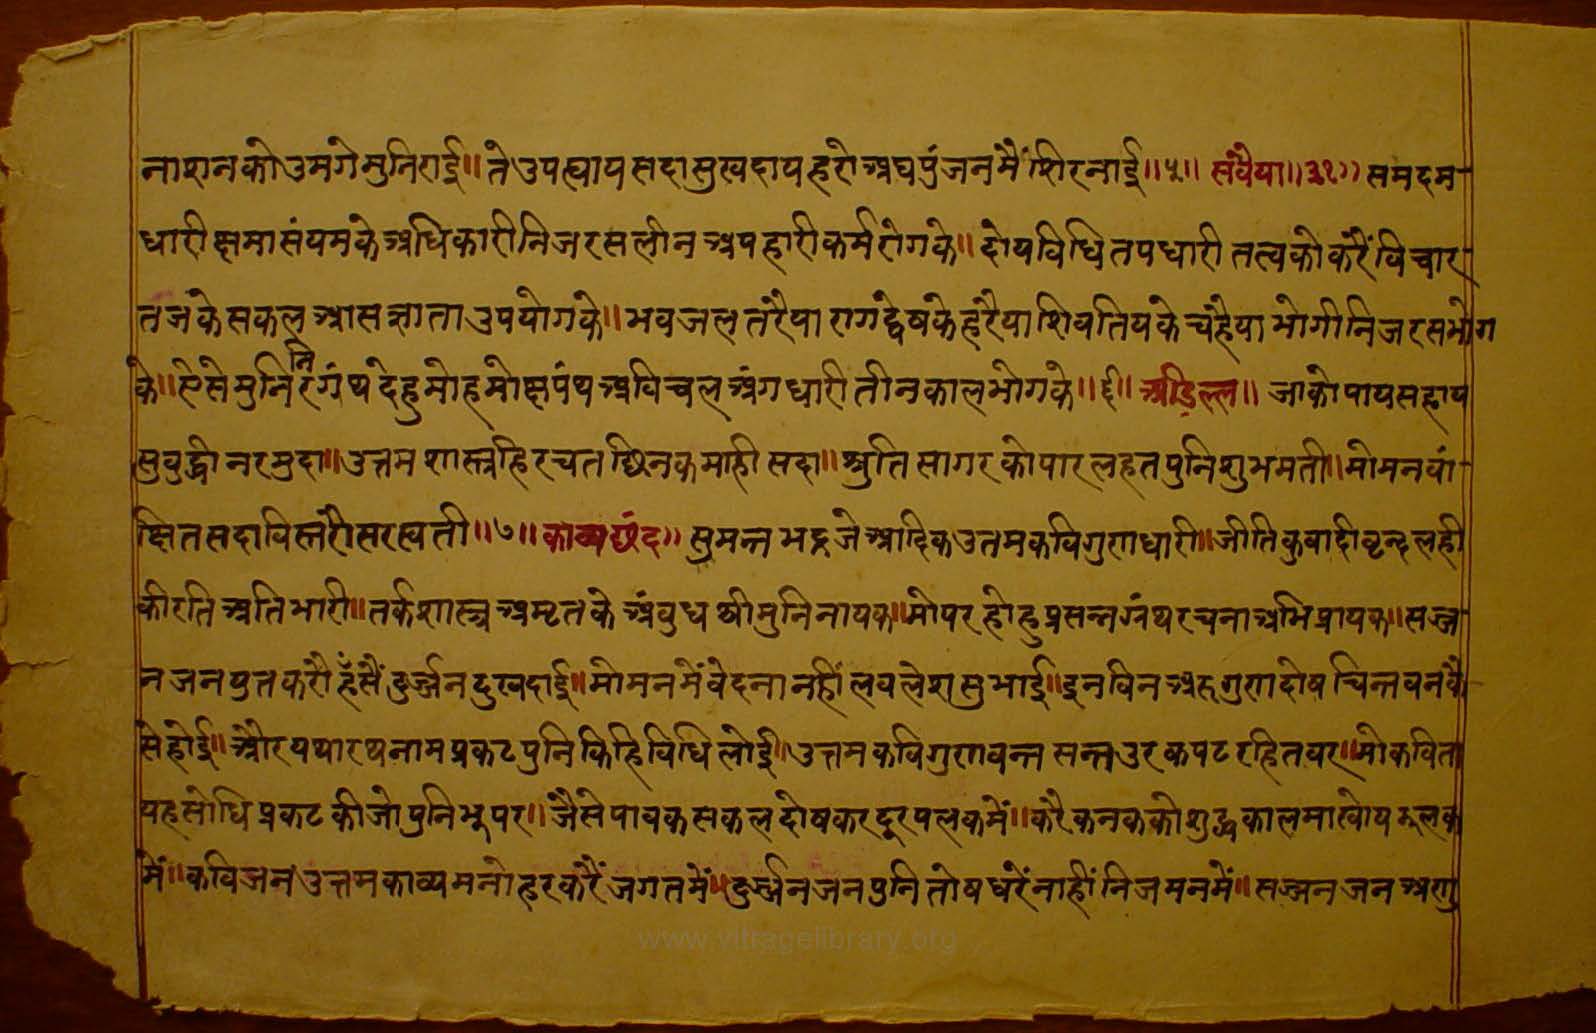 नाशनकोउमगेमुनिराई॥ तेउपध्यायसदासुखदायहरोअघपुंजनमैंशिरनाई॥५॥ सवैया॥३१॥ समदम
धारीक्षमासंयमकेअधिकारीनिजरसलीनअपहारीकर्मरोगके॥ दोयविधितपधारीतत्वकोकरैंविचार
तजकेसकलआसज्ञाताउपयोगके॥ भवजलतरैयारागद्वेषकेहरैयाशिवतियकेचहैयाभोगीनिजरसभोग
के॥ऐसेमुनिनिरग्रंथदेहुमोहमोक्षपंथअविचलअंगधारीतीनकालभोगके॥६॥ अडिल्ल॥ जाकोपायसहाय
सुबुद्धीनरमुदा॥उत्तमशास्त्रहिरचतछिनकमाहीसदा॥श्रुतिसागरकोपारलहतपुनिशुभमती॥मोमनवां
छितसदाविस्तरौसरस्वती॥७॥ काव्यछंद॥ सुमन्तभद्रजेआदिकउतमकविगुणधारी॥जीतिकुवादीवृन्दलही
कीरतिअतिभारी॥तर्कशास्त्रअमृतकेअंबुधश्रीमुनिनायक॥मोपरहोहुप्रसन्नग्रंथरचनाअभिप्रायक॥सज्ज
नजनपुतकरौहँसैंदुर्ज्जनदुखदाई॥मोमनमेंवेदनानहींलवलेशसुभाई॥इनविनअरुगुणदोषचिन्तवनकै
सेहोई॥औरयथारथनामप्रकटपुनिकिहिविधिलोई॥उत्तमकविगुणवन्तसन्तउरकपटरहितवर॥मोकविता
यहसोधिप्रकटकीजोपुनिभूपर॥जैसेपावकसकलदोषकरदूरपलकमें॥करैकनककोशुद्धकालमाखोयझलक
में॥कविजनउत्तमकाव्यमनोहरकरैंजगतमें॥दुर्ज्जनजनपुनितोषधरेंनाहींनिजमनमें॥सज्जनजनअणु
www.vitragelibrary.org